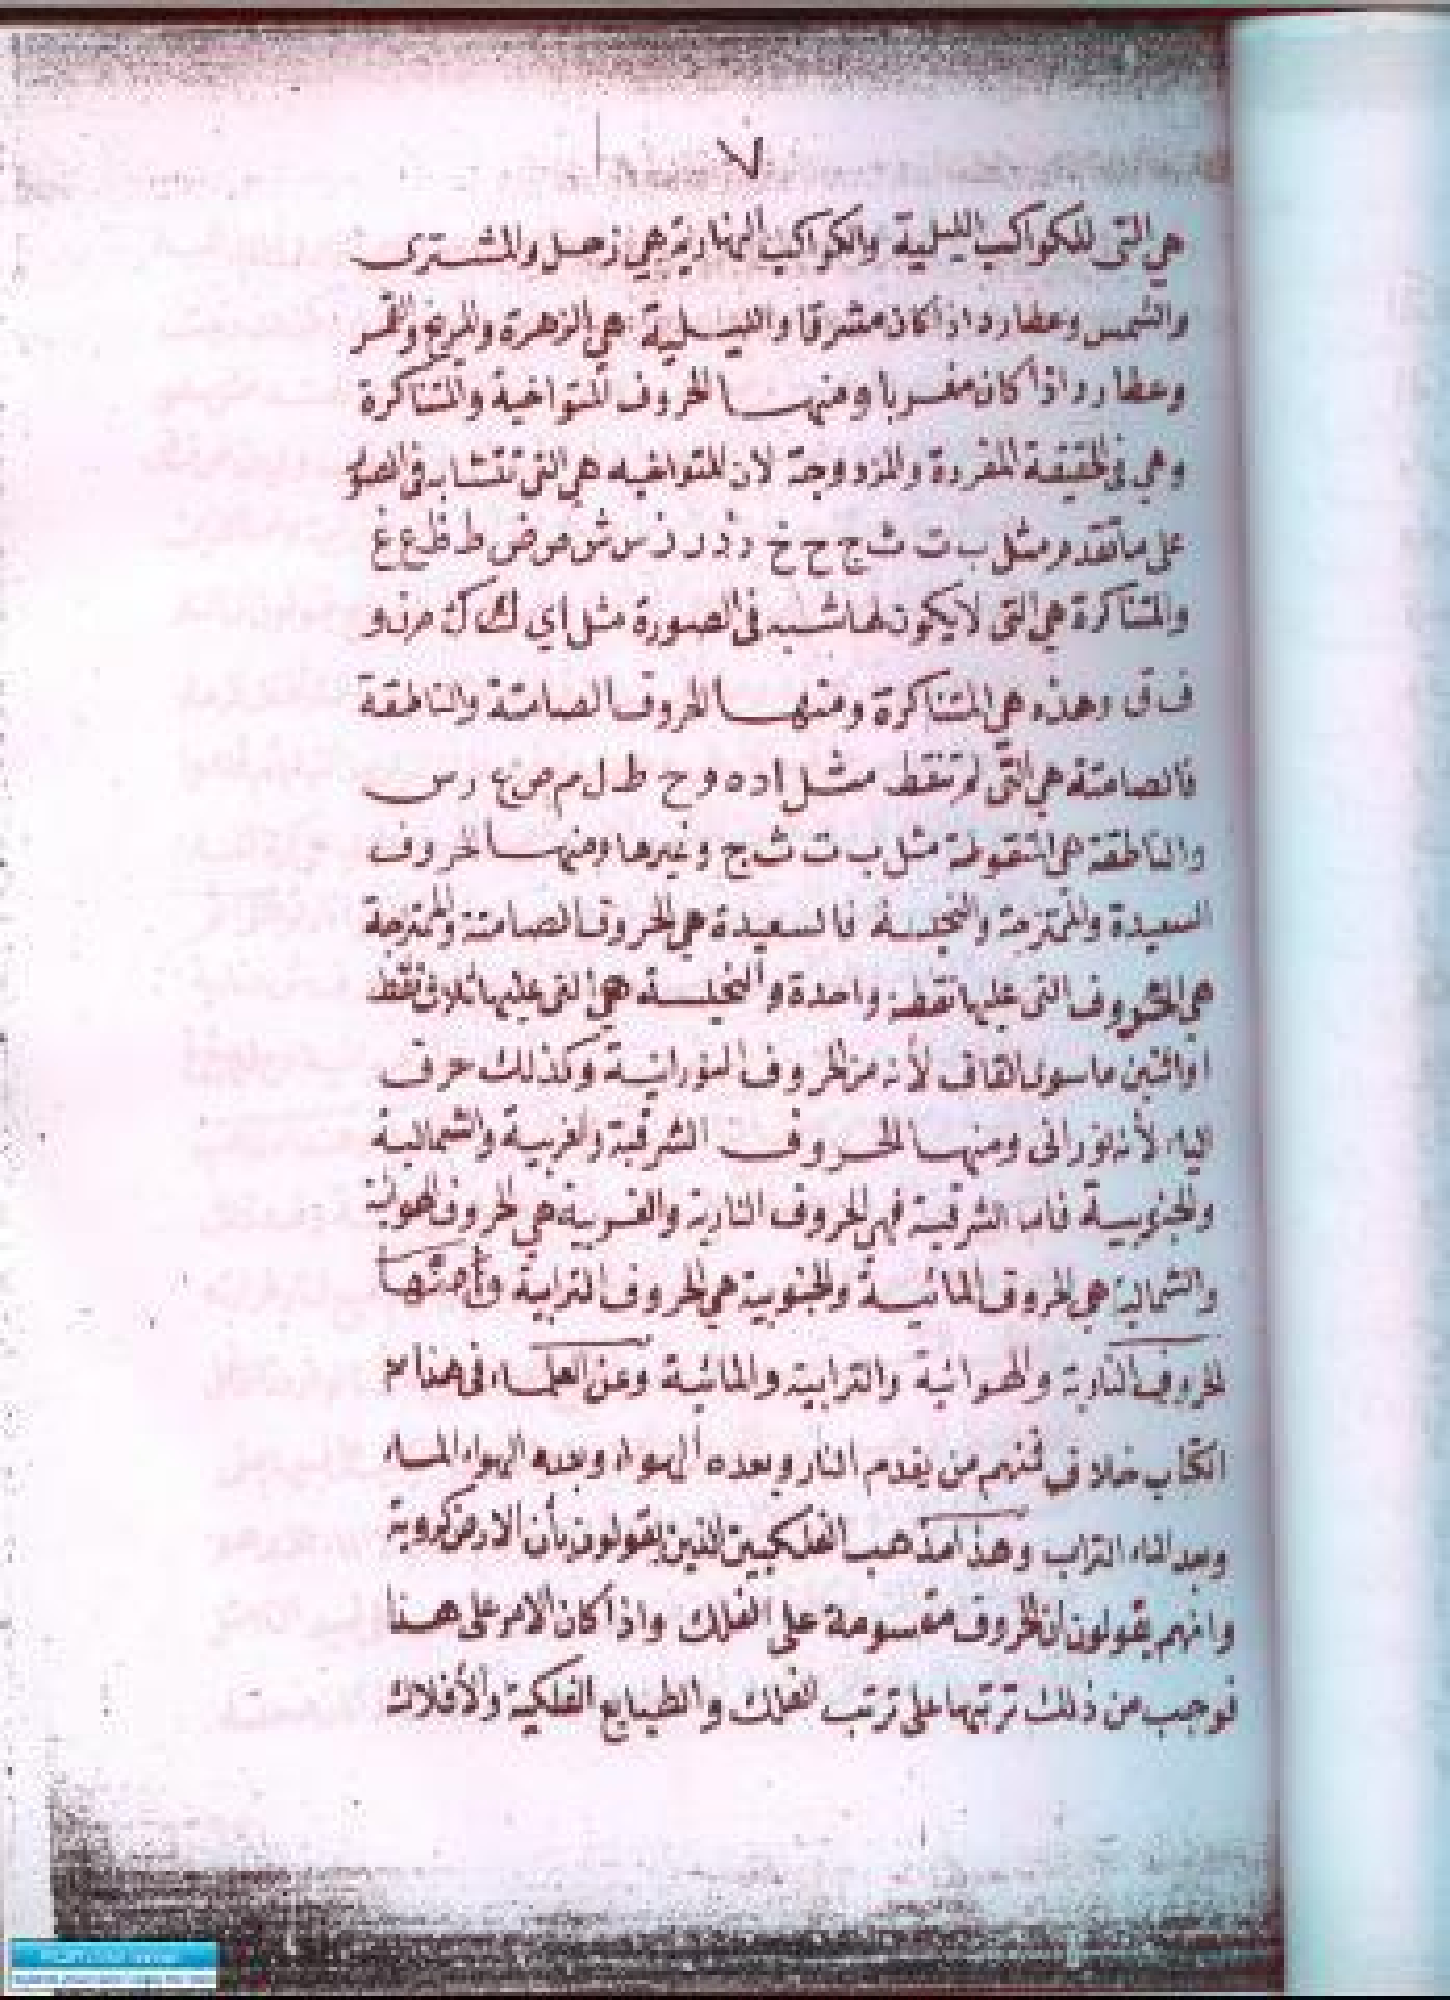 ٧
هي التى للكواكب الليلية والكواكب النهارية هي زحل والمشترى
والشمس وعطارد اذا كان مشرقا والليلية هي الزهرة والمريخ والقمر
وعطارد اذا كان مغربا ومنها الحروف المتواخية والمتناكرة
وهي فى الحقيقة المفردة والمزدوجة لان المتواخيه هي التى تتشابه فى الصو
على ما تقدم مثل ب ت ث ج ح خ د ذ ر ز س ش ص ض ط ظ ع غ
والمتناكرة هي التى لا يكون لها شبه فى الصورة مثل ا ي ك ل م ن و
ف ق وهذه هي المتناكرة ومنها الحروف الصامتة والناطقة
فالصامتة هي التى لم تنقط مثل ا د ه و ح ط ل م ص ع ر س
والناطقة هي المنقوطة مثل ب ت ث ج وغيرها ومنها الحروف
السعيدة والممتزجة والنحيسة فالسعيدة هي الحروف الصامتة والممتزجة
هي الحروف التى عليها نقطة واحدة والنحيسة هي التى عليها ثلاث نقط
او اثنين ما سوى القاف لأنه من الحروف النورانية وكذلك حرف
الياء لأنه نورانى ومنها الحروف الشرقية والغربية والشمالية
والجنوبية فاما الشرقية فهي الحروف النارية والغربية هي الحروف الهوائية
والشمالية هي الحروف المائية والجنوبية هي الحروف الترابية
الحروف النارية والهوائية والترابية والمائية وعن العلماء فى هذا
الكتاب خلاف فمنهم من يقدم النار وبعده الهواء وبعده الهواء الماء
وبعد الماء التراب وهذا مذهب الفلكيين الذين يقولون بأن الارض كروية
وانهم يقولون ان الحروف مقسومة على الفلك واذا كان الامر على هذا
فوجب من ذلك ترتبها على ترتب الفلك والطبايع الفلكية والأفلاك